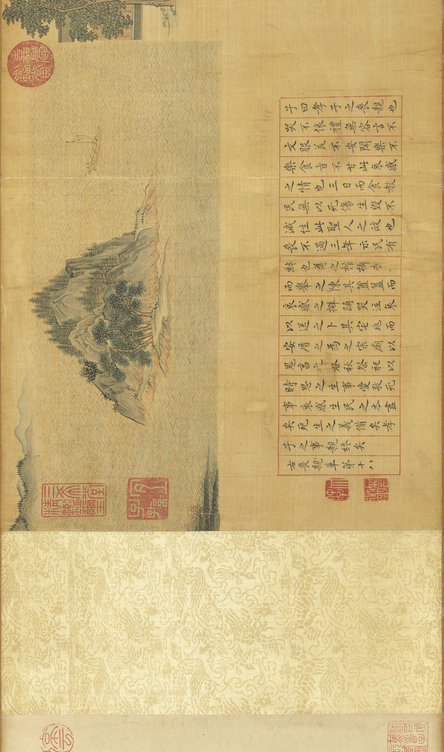 子曰孝子之喪親也
哭不偯禮無容言不
文服美不安聞樂不
樂食旨不甘此哀慼
之情也三日而食教
民無以死傷生毀不
滅性此聖人之政也
喪不過三年示民有
終也為之棺槨衣衾
而舉之陳其簠簋而
哀慼之擗踊哭泣哀
以送之卜其宅兆而
安厝之為之宗廟以
鬼享之春秋祭祀以
時思之生事愛敬死
事哀慼生民之本盡
矣死生之義備矣孝
子之事親終矣
右喪親章第十八